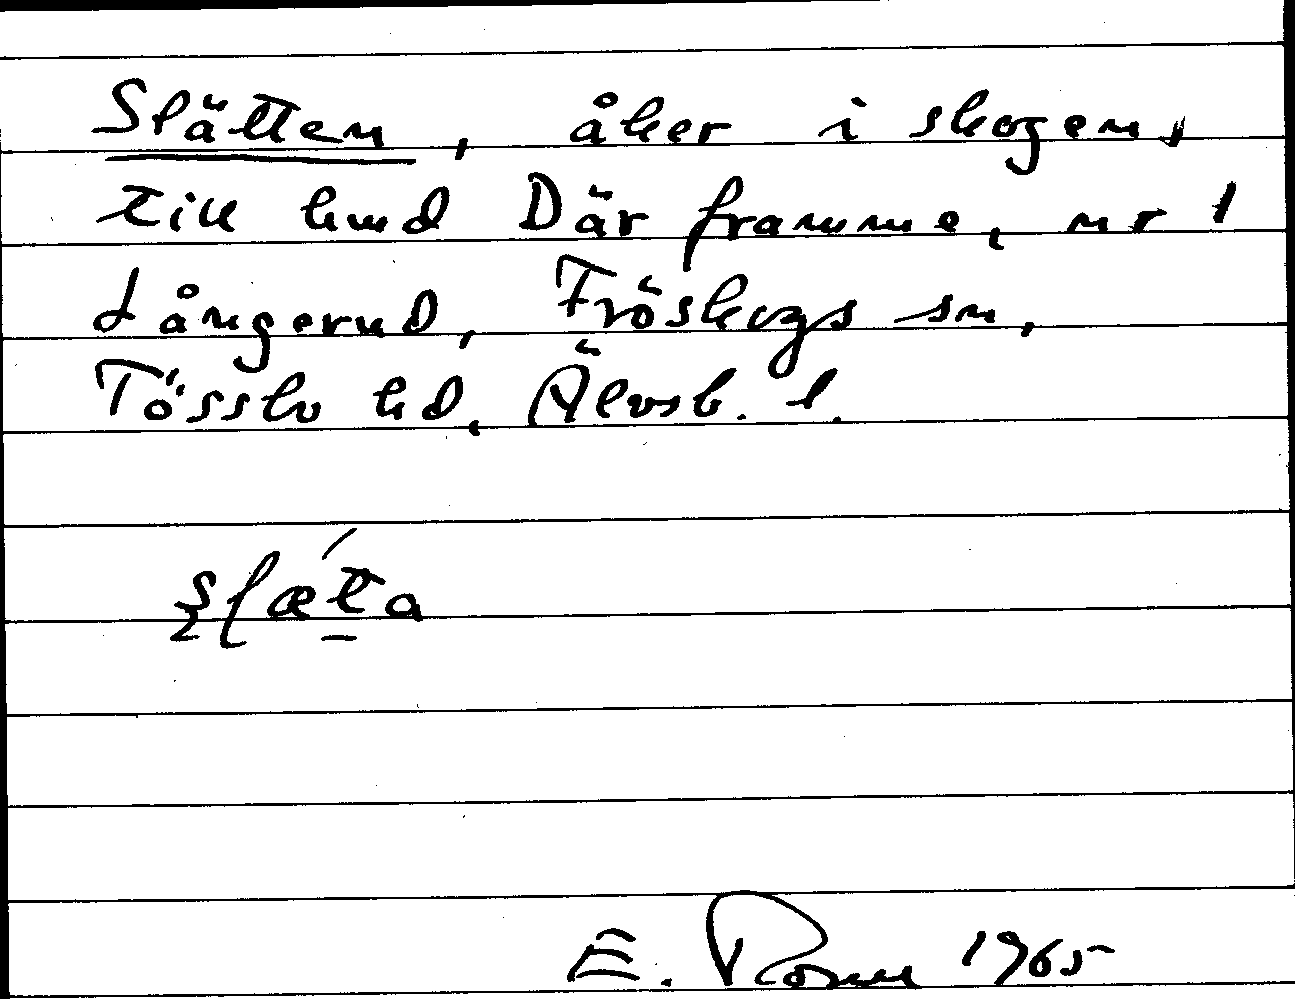 Slätten, åker i skogen,
till hmd Där framme, nr 1
Långerud, Fröskogs sn,
Tössbo hd, Älvsb. l.
E. 1965